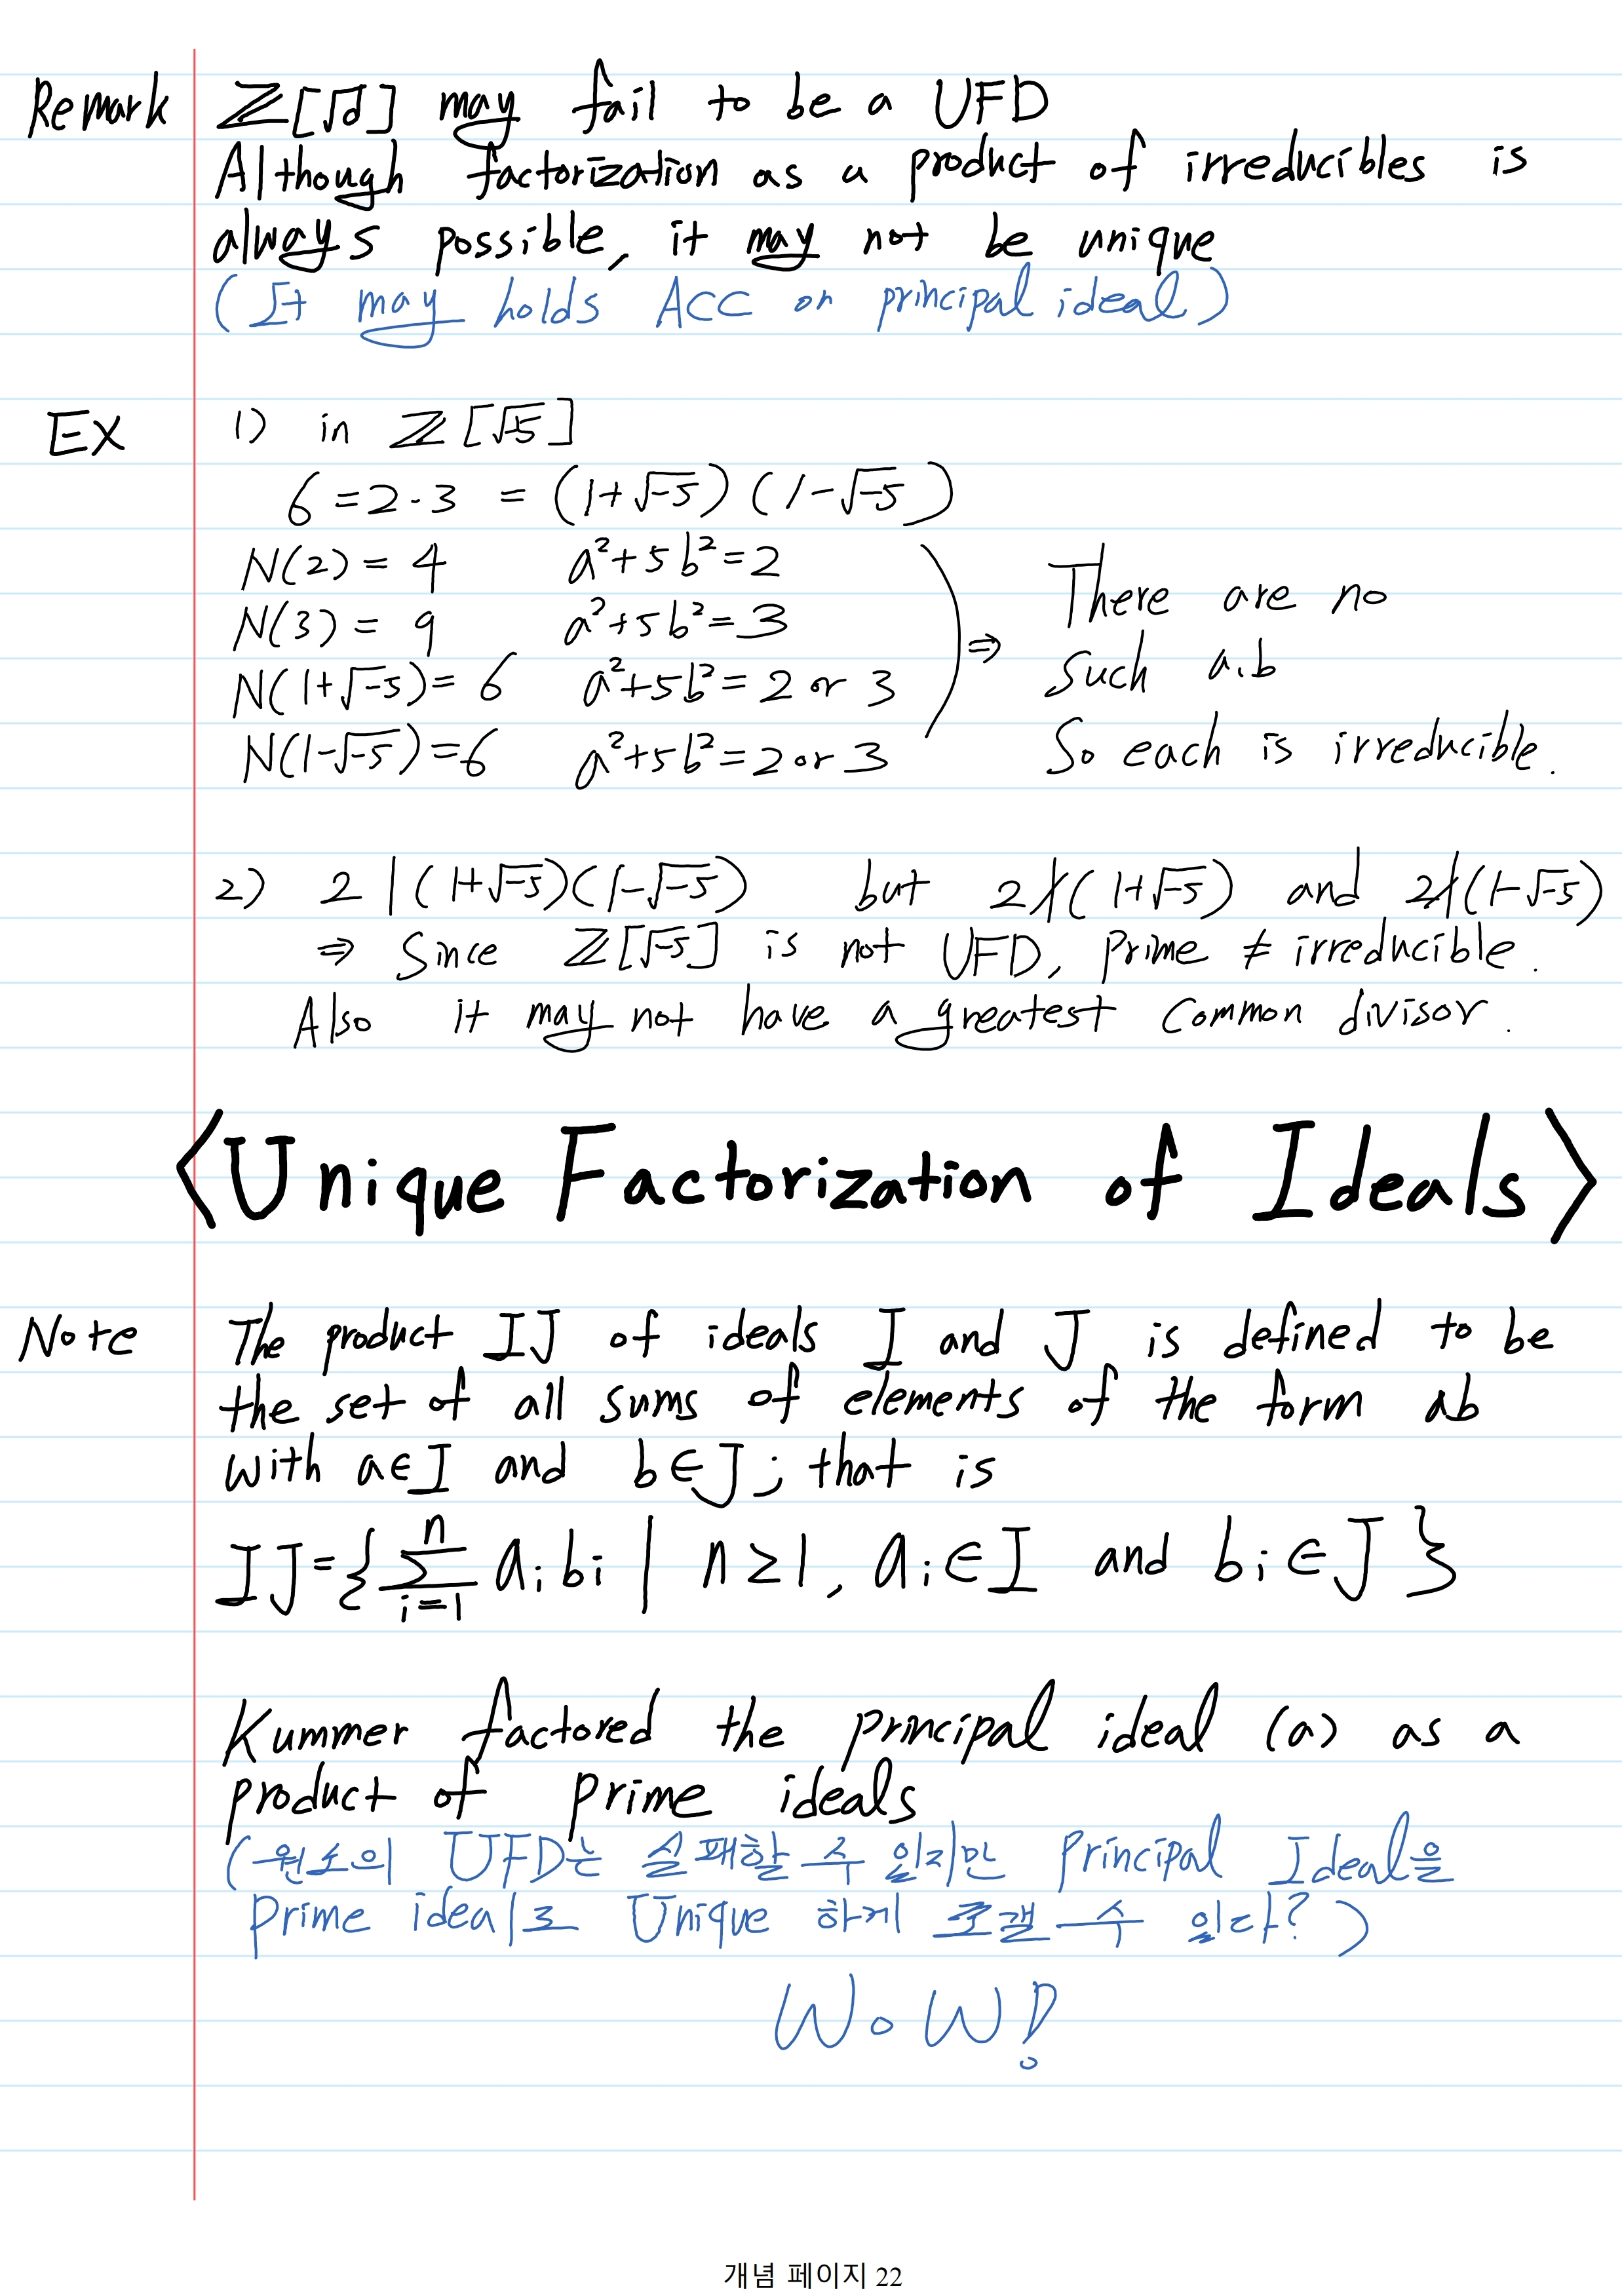 Remark ℤ[√d] may fail to be a UFD
Although factorization as a product of irreducibles is
always possible, it may not be unique
(It may holds ACC on principal ideal)
EX 1) in ℤ[√-5]
6 = 2·3 = (1+√-5)(1-√-5)
N(2) = 4 a²+5b²=2
N(3) = 9 a²+5b²=3
N(1+√-5) = 6 a²+5b²=2 or 3
N(1-√-5) = 6 a²+5b²=2 or 3
⇒ There are no
such a,b
So each is irreducible.
2) 2 | (1+√-5)(1-√-5) but 2∤(1+√-5) and 2∤(1-√-5)
⇒ Since ℤ[√-5] is not UFD, prime ≠ irreducible.
Also it may not have a greatest common divisor.
<Unique Factorization of Ideals>
Note The product IJ of ideals I and J is defined to be
the set of all sums of elements of the form ab
with a∈I and b∈J; that is
IJ={∑ⁿᵢ₌₁ aᵢbᵢ | n≥1, aᵢ∈I and bᵢ∈J}
Kummer factored the principal ideal (a) as a
product of prime ideals
(원소의 UFD는 실패할 수 있지만 Principal Ideal을
Prime ideal로 Unique 하게 쪼갤 수 있다?)
WoW!
개념 페이지 22